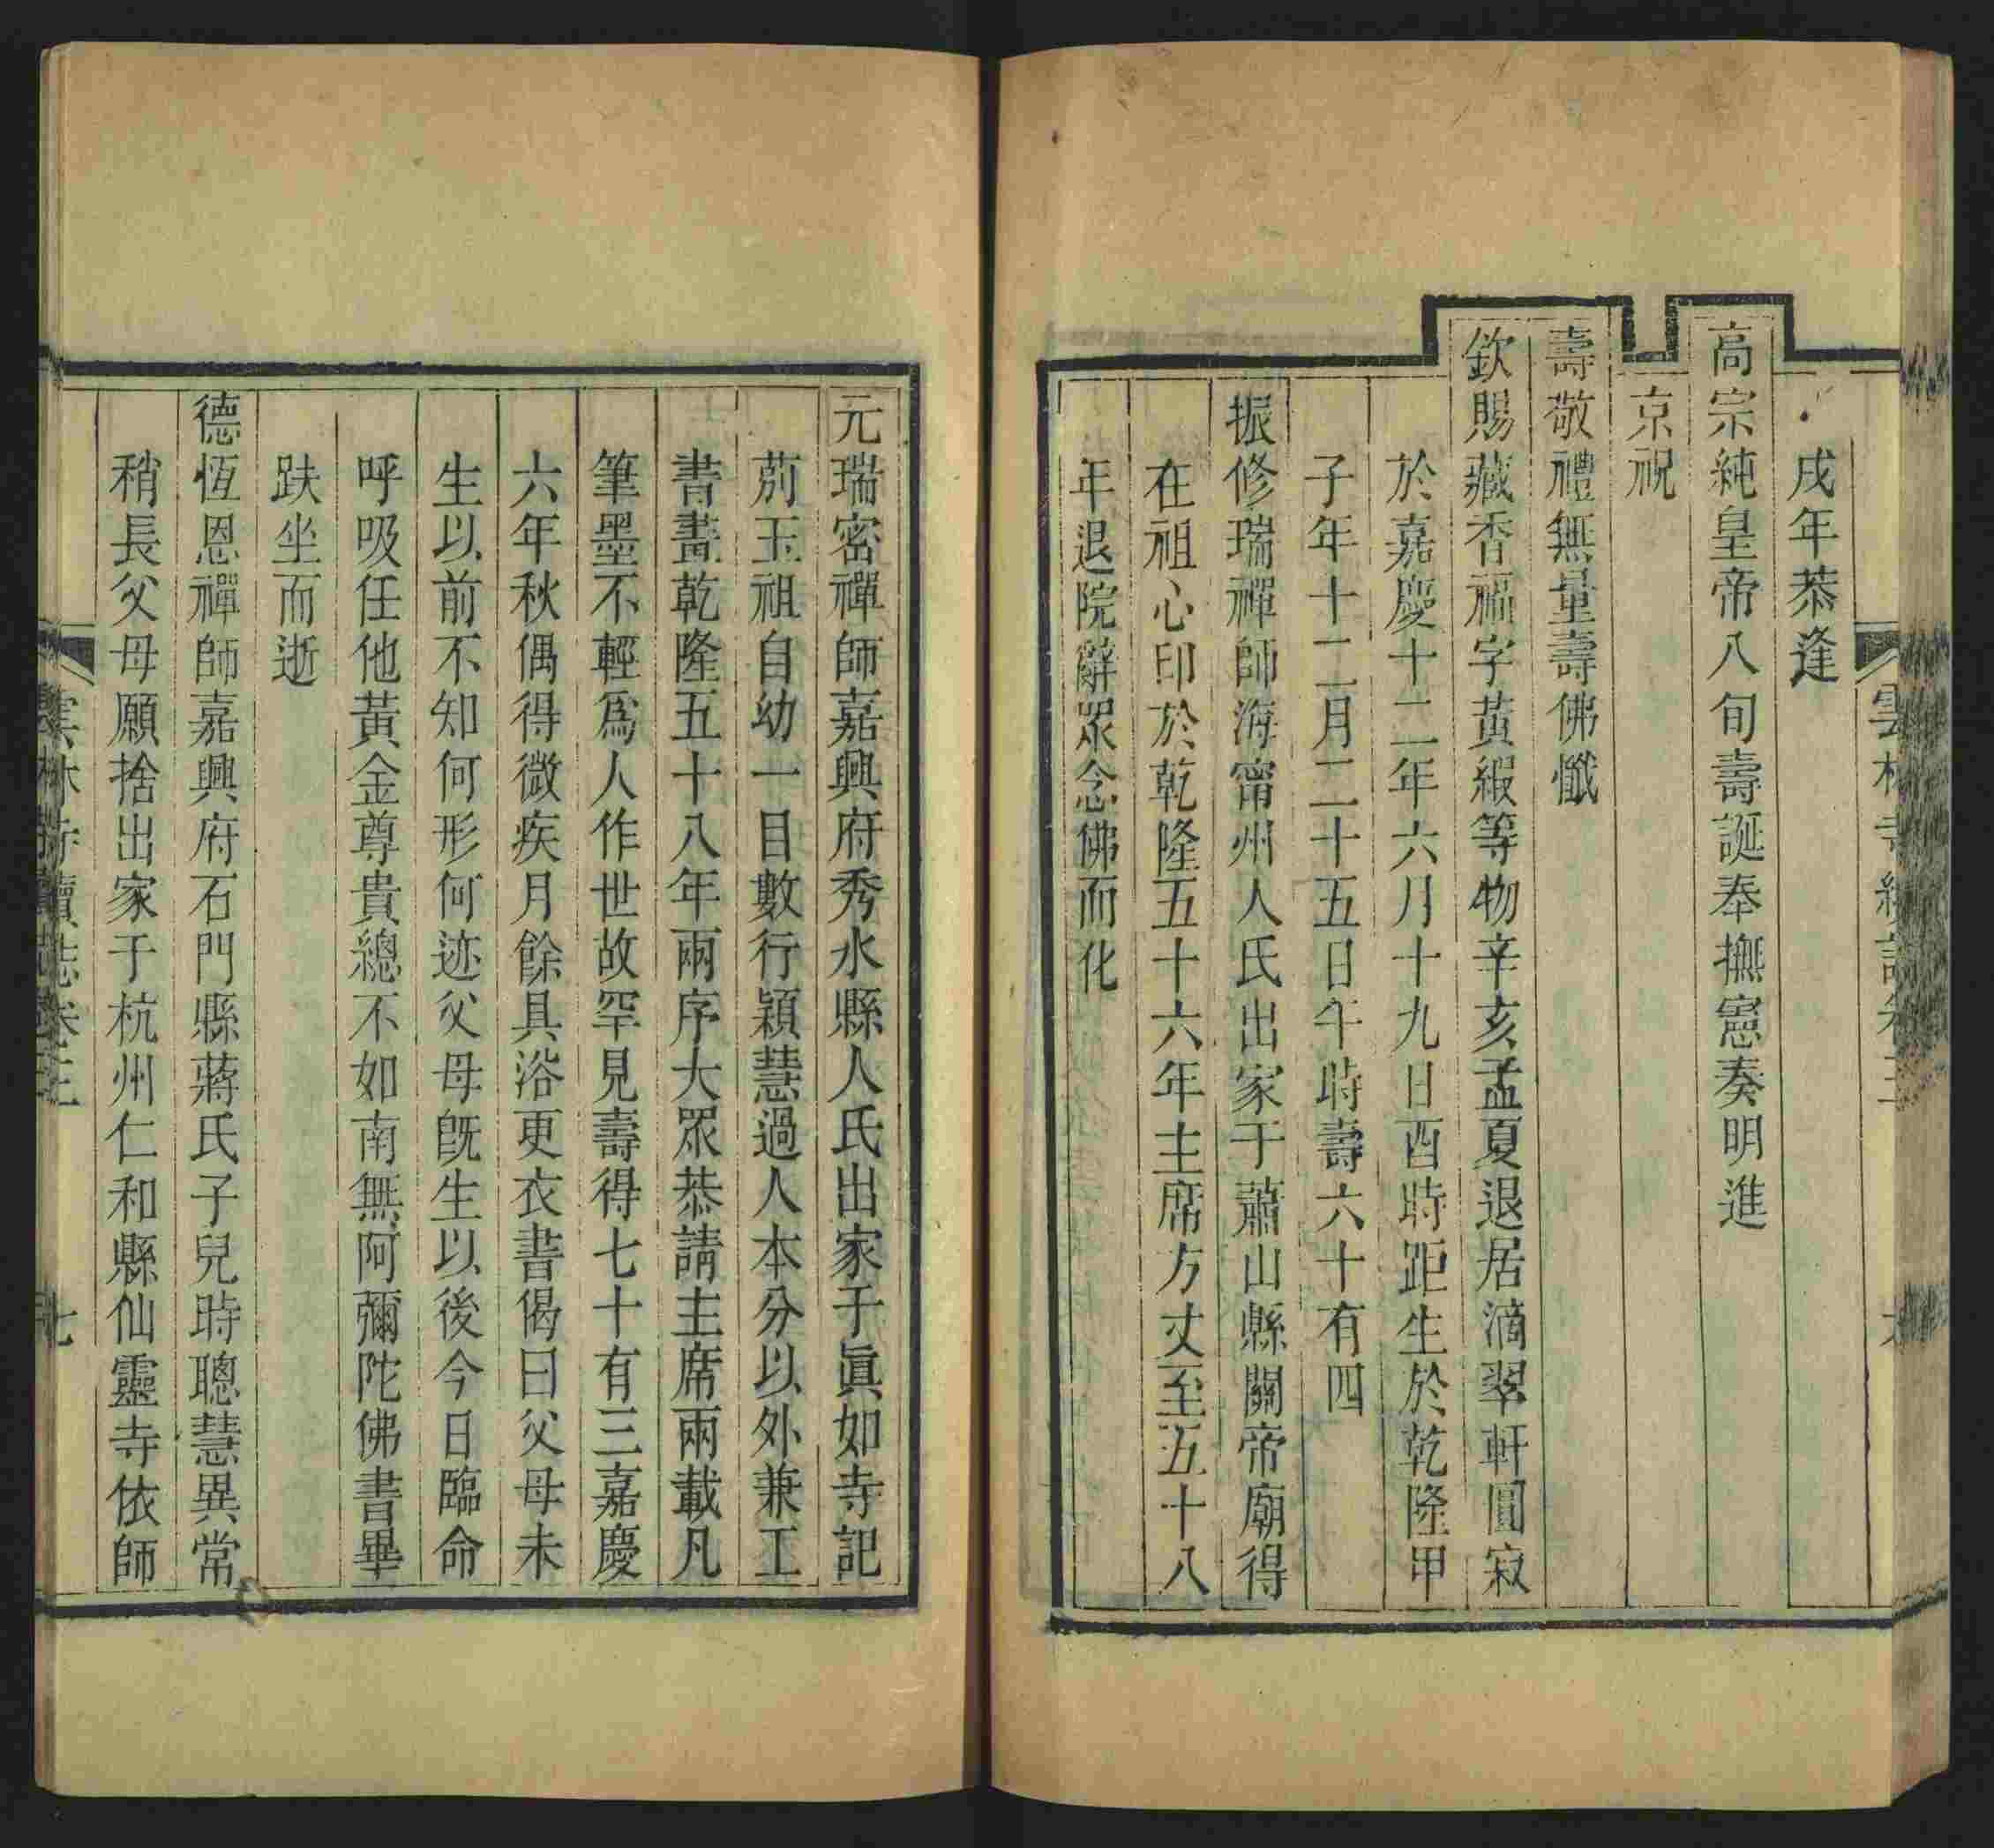 戌年恭逢
高宗純皇帝八旬壽誕奉撫憲奏明進
京祝
壽敬禮無量壽佛懺
欽賜藏香福字黃緞等物辛亥孟夏退居滴翠軒圓寂
於嘉慶十二年六月十九日酉時距生於乾隆甲
子年十二月二十五日午時壽六十有四
振修瑞禪師海甯州人氏出家于蕭山縣關帝廟得
在祖心印於乾隆五十六年主席方丈至五十八
年退院辭眾念佛而化
元瑞密禪師嘉興府秀水縣人氏出家于眞如寺記
莂玉祖自幼一目數行穎慧過人本分以外兼工
書畫乾隆五十八年兩序大眾恭請主席兩載凡
筆墨不輕爲人作世故罕見壽得七十有三嘉慶
六年秋偶得微疾月餘具浴更衣書偈曰父母未
生以前不知何形何迹父母旣生以後今日臨命
呼吸任他黃金尊貴總不如南無阿彌陀佛書畢
趺坐而逝
德恆恩禪師嘉興府石門縣蔣氏子兒時聰慧異常
稍長父母願捨出家于杭州仁和縣仙靈寺依師
雲林寺續誌卷三
七